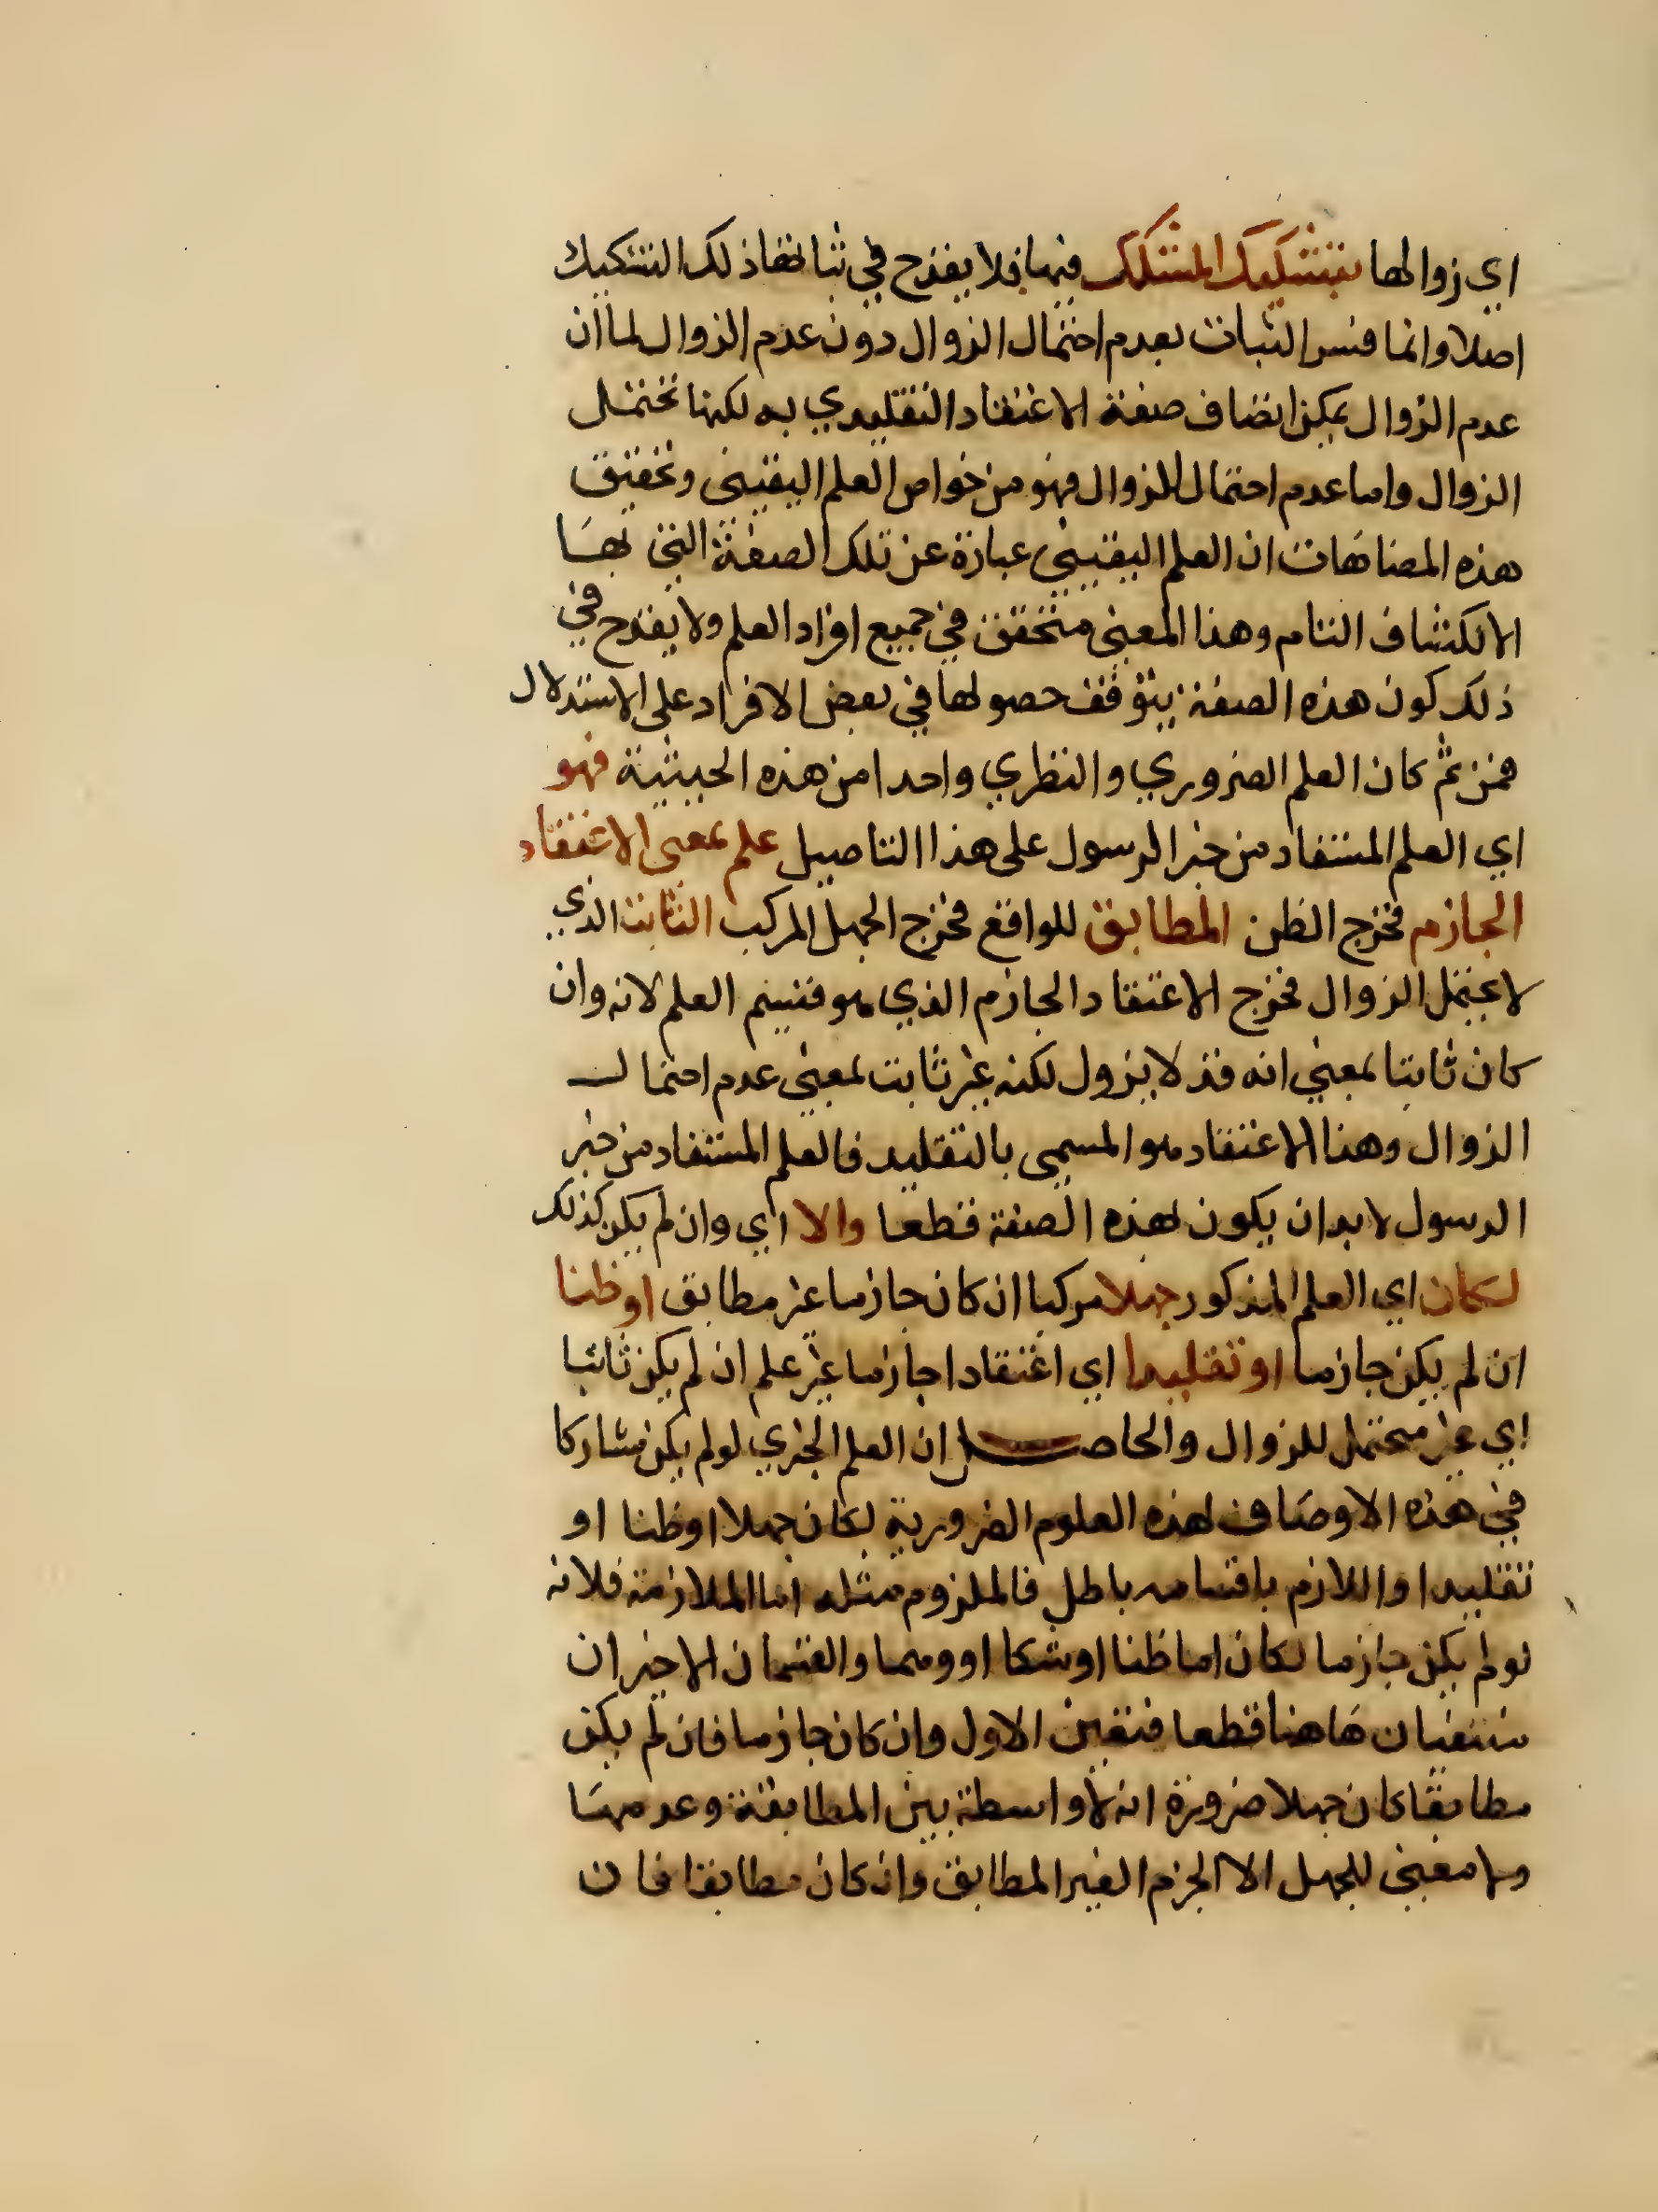 اي زوالها بتشكيك المشكك فيها فلا يقدح في ثباتها ذلك التشكيك
اصلا وانما فسر الثبات بعدم احتمال الزوال دون عدم الزوال لما ان
عدم الزوال يمكن اتصاف صفة الاعتقاد التقليدي به لكنها تحتمل
الزوال واما عدم احتمال الزوال فهو من خواص العلم اليقيني وتحقيق
هذه المضاهات ان العلم اليقيني عبارة عن تلك الصفة التي بها
الانكشاف التام وهذا المعنى متحقق في جميع افراد العلم ولا يقدح في
ذلك كون هذه الصفة يتوقف حصولها في بعض الافراد على الاستدلال
فمن ثم كان العلم الضروري والنظري واحدا من هذه الحيثية فهو
اي العلم المستفاد من خبر الرسول على هذا التاصيل علم بمعنى الاعتقاد
الجازم فخرج الظن المطابق للواقع فخرج الجهل المركب الثابت الذي
لا يحتمل الزوال فخرج الاعتقاد الجازم الذي هو قسيم العلم لانه وان
كان ثابتا بمعنى انه قد لا يزول لكنه غير ثابت بمعنى عدم احتمال
الزوال وهذا الاعتقاد هو المسمى بالتقليد فالعلم المستفاد من خبر
الرسول لابد ان يكون بهذه الصفة قطعا والا اي وان لم يكن كذلك
لكان اي العلم المذكور جهلا مركبا ان كان جازما غير مطابق او ظنا
ان لم يكن جازما او تقليدا اي اعتقادا جازما غير علم ان لم يكن ثابتا
اي غير محتمل للزوال والحاصل ان العلم الخبري لو لم يكن مشاركا
في هذه الاوصاف لهذه العلوم الضرورية لكان جهلا او ظنا او
تقليدا واللازم باقسامه باطل فالملزوم مثله اما الملازمة فلانه
لو لم يكن جازما لكان اما ظنا او شكا او وهما والقسمان الاخيران
منتفيان هاهنا قطعا فتعين الاول وان كان جازما فان لم يكن
مطابقا كان جهلا ضرورة انه لا واسطة بين المطابقة وعدمها
ولا معنى للجهل الا الجزم الغير المطابق وان كان مطابقا فان